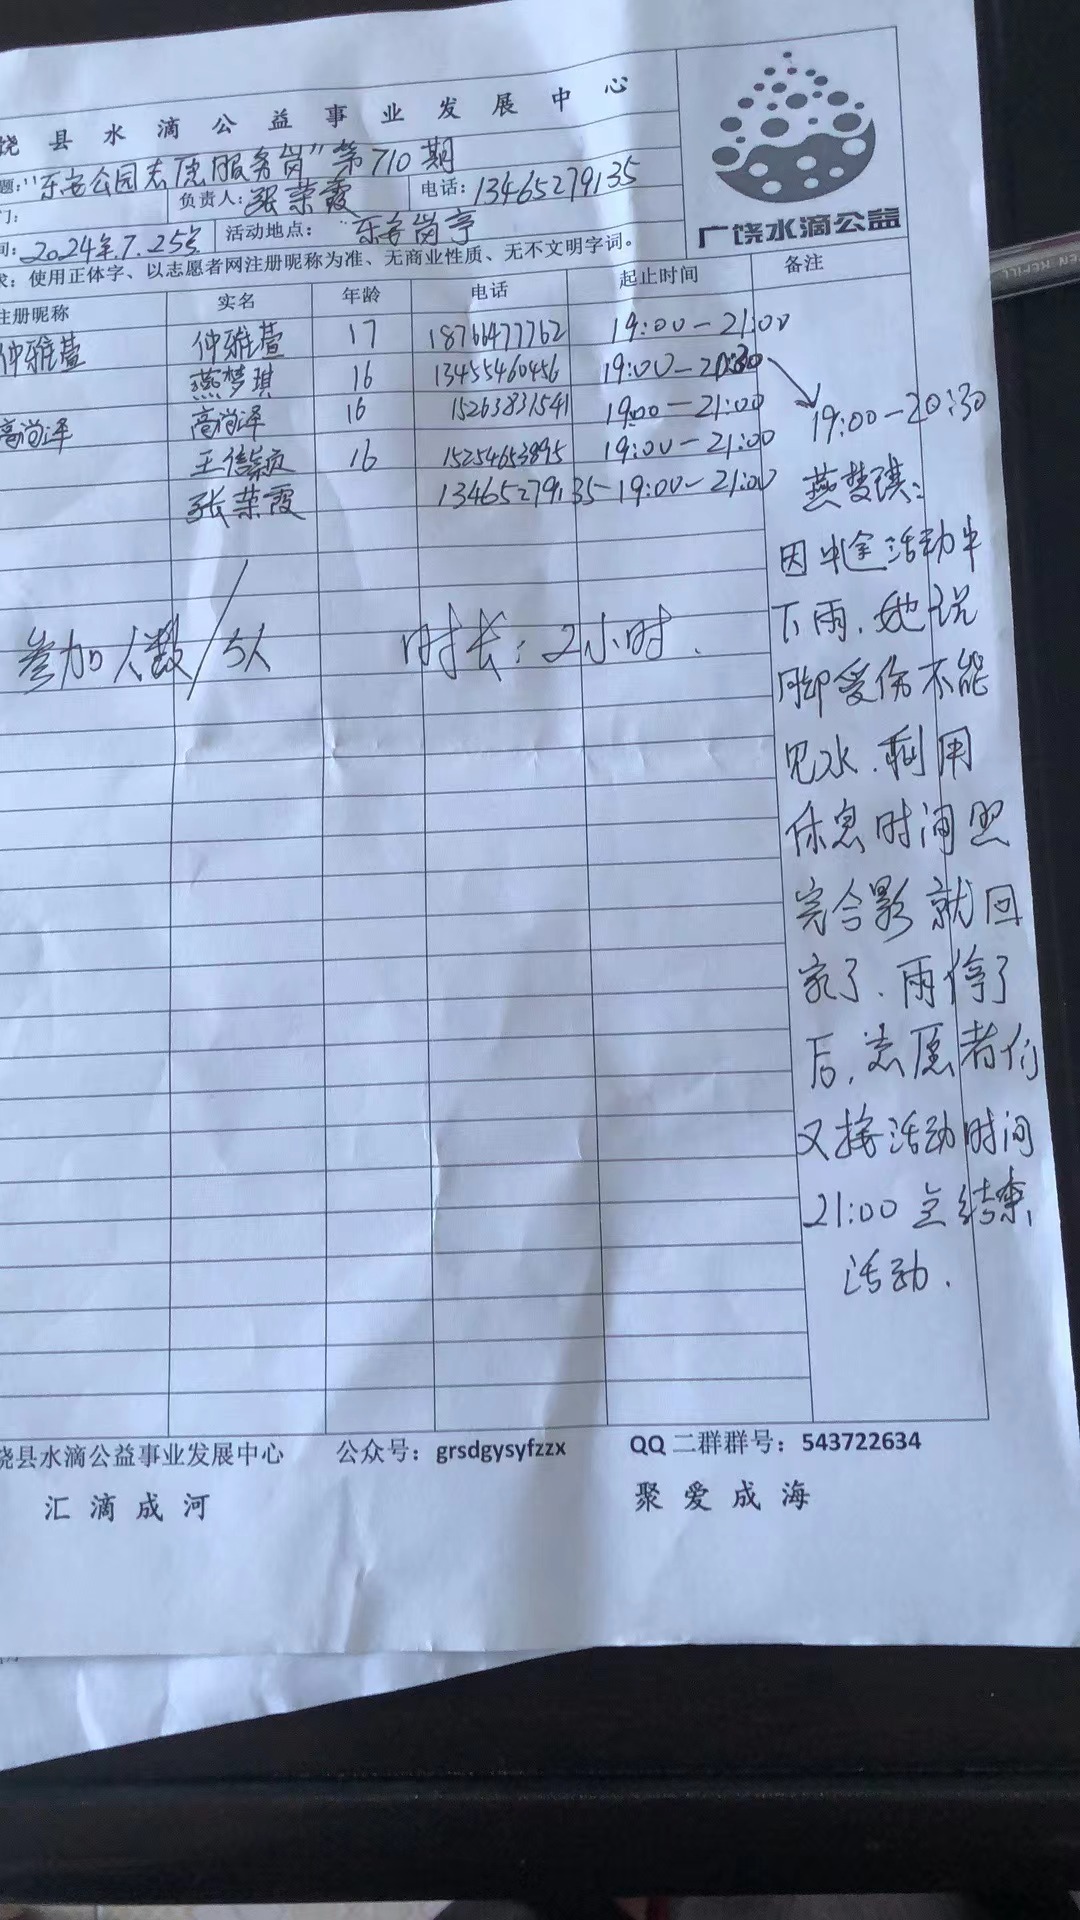 饶县水滴公益事业发展中心
题:"东安公园志愿服务岗"第710期
门: 负责人:张荣霞 电话:13465279135
间:2024年.7.25号 活动地点: "东安岗亭
求:使用正体字、以志愿者网注册昵称为准、无商业性质、无不文明字词。
广饶水滴公益
注册昵称 实名 年龄 电话 起止时间 备注
仲雅萱 仲雅萱 17 18766477762 19:00-21:00
燕梦琪 16 13455460456 19:00-20:30
19:00-20:30
高尚泽 高尚泽 16 15263831541 19:00-21:00
王倩颖 16 15254653895 19:00-21:00
张荣霞 13465279135-19:00-21:00
燕梦琪:
因中途活动中
下雨,她说
脚受伤不能
见水.利用
休息时间照
完合影就回
家了.雨停了
后,志愿者们
又接活动时间
21:00点结束
活动.
参加人数/5人 时长:2小时.
饶县水滴公益事业发展中心 公众号:grsdgysyfzzx QQ二群群号:543722634
汇滴成河 聚爱成海